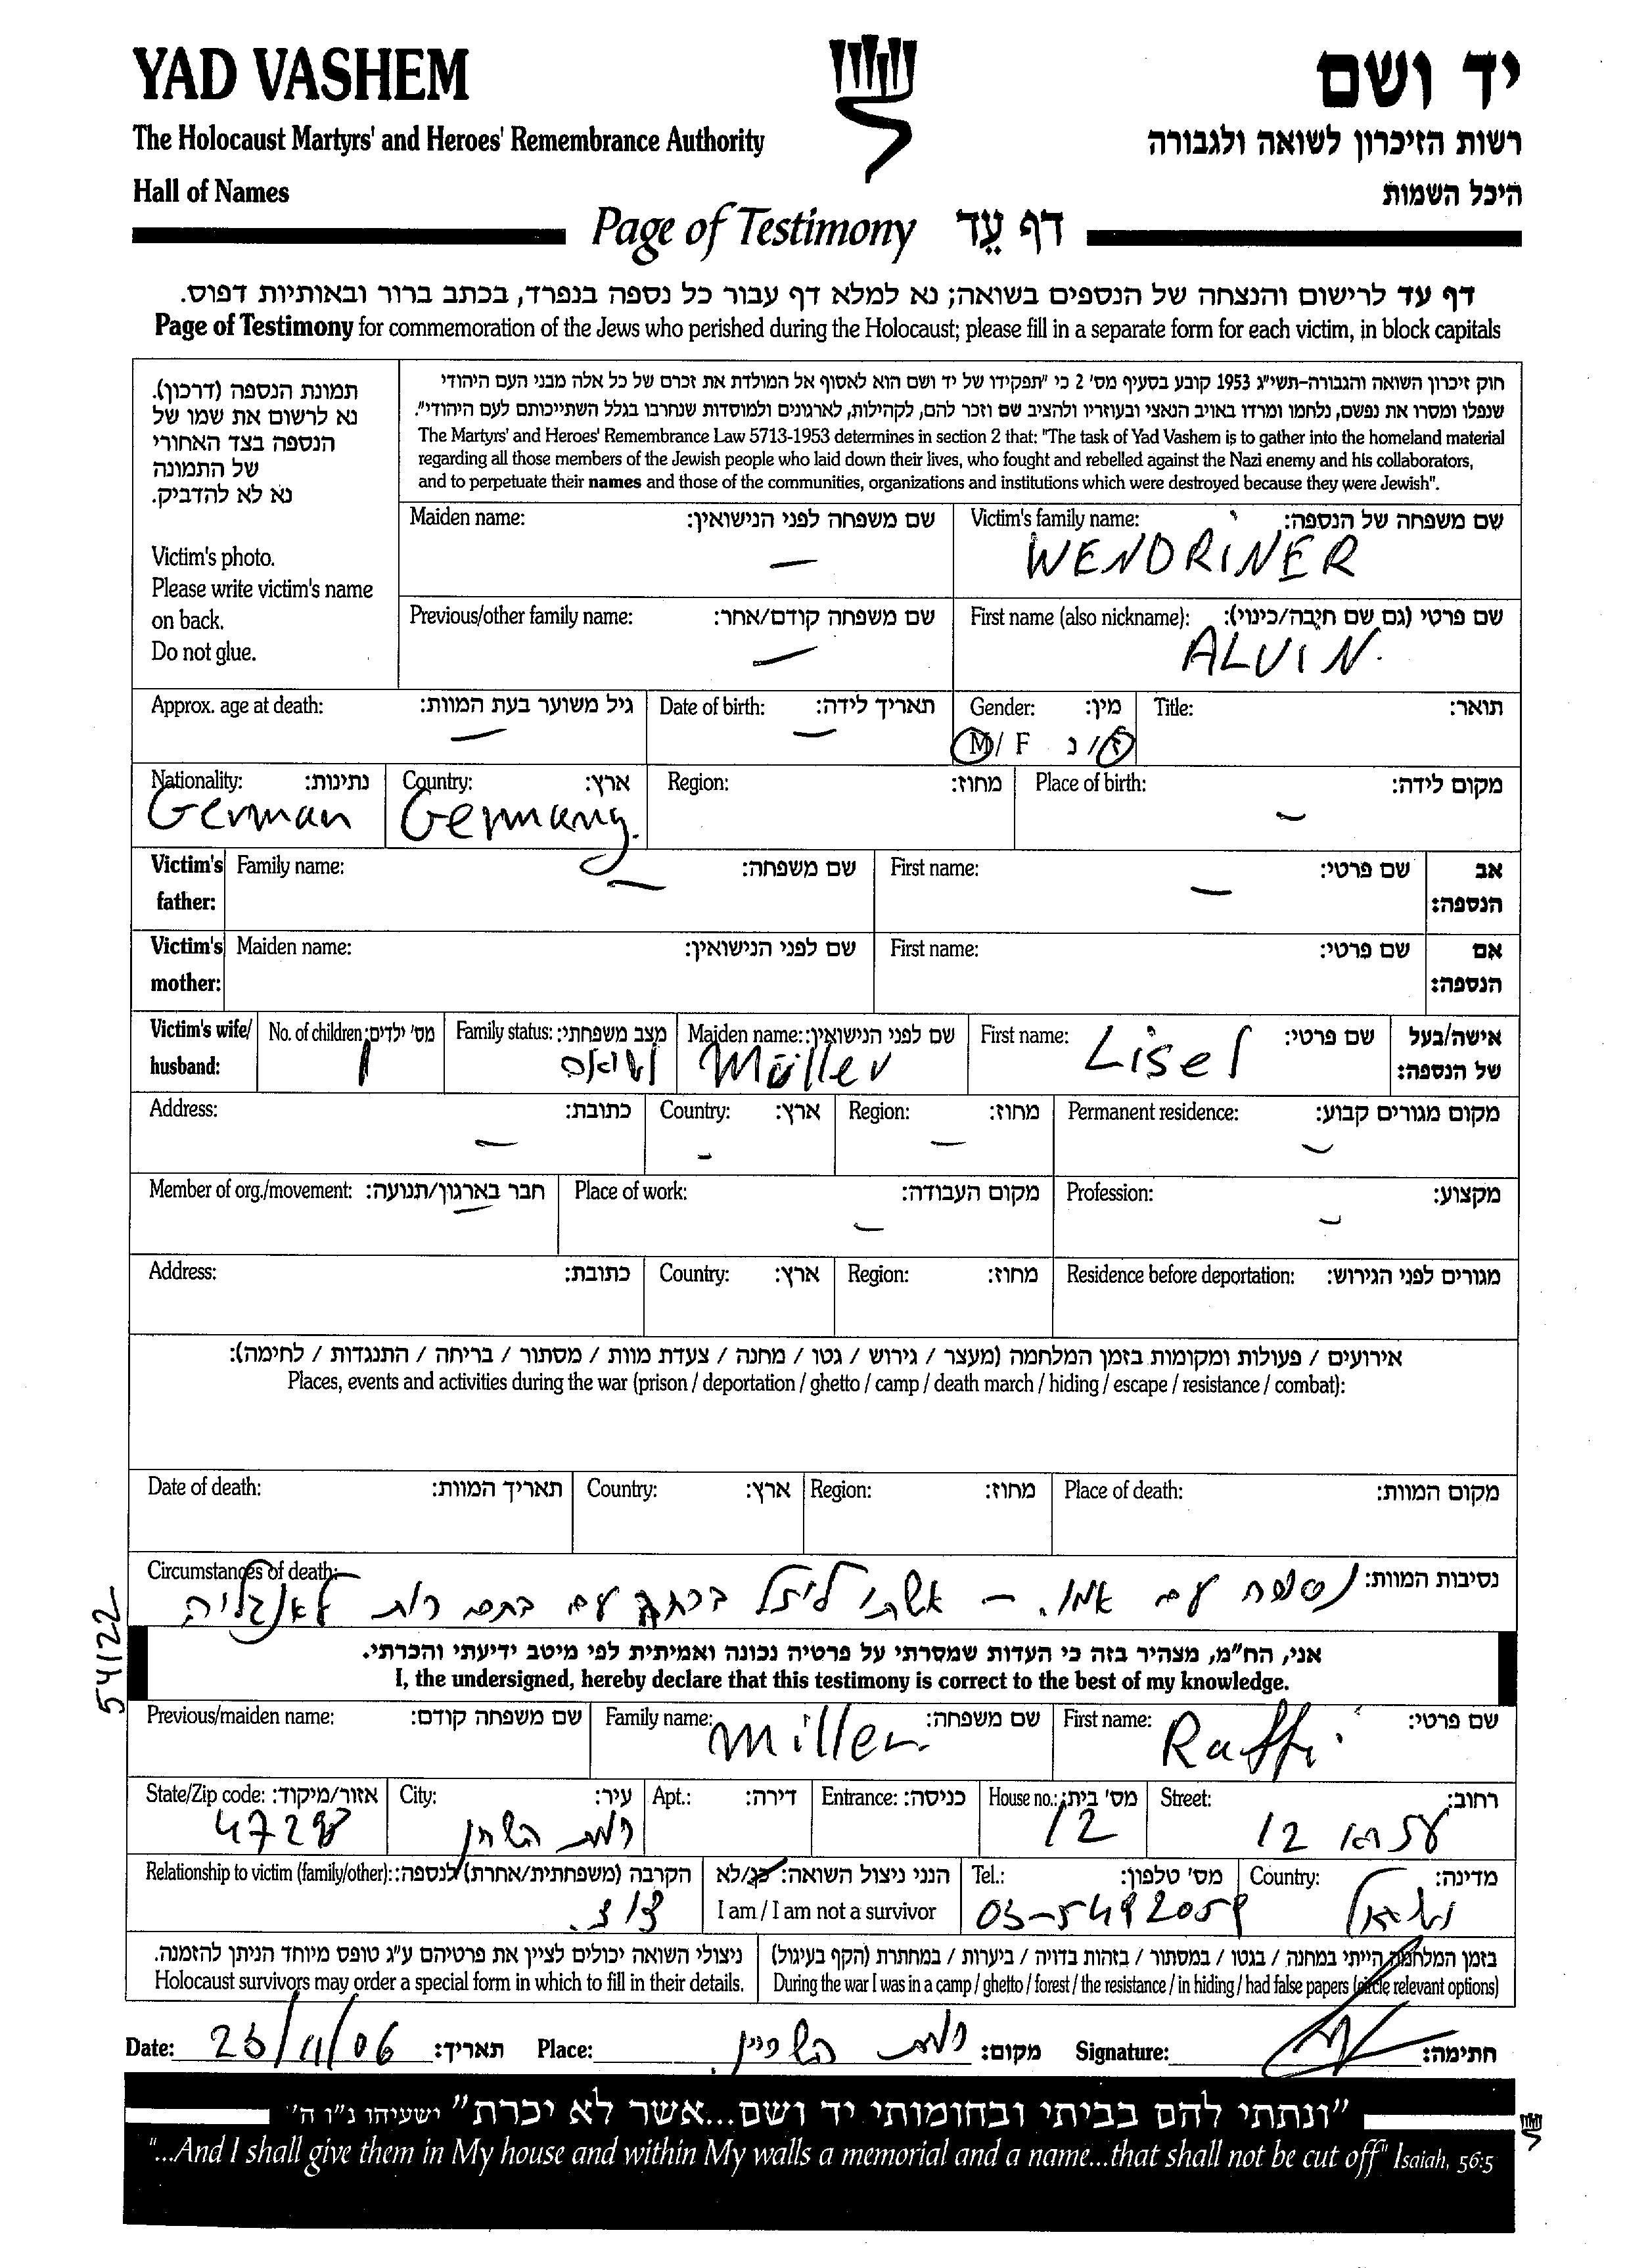 YAD VASHEM
יד ושם
The Holocaust Martyrs' and Heroes' Remembrance Authority
רשות הזיכרון לשואה ולגבורה
Hall of Names
היכל השמות
Page of Testimony דף עֵד
דף עד לרישום והנצחה של הנספים בשואה; נא למלא דף עבור כל נספה בנפרד, בכתב ברור ובאותיות דפוס.
Page of Testimony for commemoration of the Jews who perished during the Holocaust; please fill in a separate form for each victim, in block capitals
תמונת הנספה (דרכון).
נא לרשום את שמו של
הנספה בצד האחורי
של התמונה
נא לא להדביק.
Victim's photo.
Please write victim's name
on back.
Do not glue.
חוק זיכרון השואה והגבורה-תשי"ג 1953 קובע בסעיף מס' 2 כי "תפקידו של יד ושם הוא לאסוף אל המולדת את זכרם של כל אלה מבני העם היהודי
שנפלו ומסרו את נפשם, נלחמו ומרדו באויב הנאצי ובעוזריו ולהציב שם וזכר להם, לקהילות, לארגונים ולמוסדות שנחרבו בגלל השתייכותם לעם היהודי".
The Martyrs' and Heroes' Remembrance Law 5713-1953 determines in section 2 that: "The task of Yad Vashem is to gather into the homeland material
regarding all those members of the Jewish people who laid down their lives, who fought and rebelled against the Nazi enemy and his collaborators,
and to perpetuate their names and those of the communities, organizations and institutions which were destroyed because they were Jewish".
Maiden name: שם משפחה לפני הנישואין: Victim's family name: שם משפחה של הנספה:
— WENDRINER
Previous/other family name: שם משפחה קודם/אחר: First name (also nickname): שם פרטי (גם שם חיבה/כינוי):
— ALVIN.
Approx. age at death: גיל משוער בעת המוות: Date of birth: תאריך לידה: Gender: מין: Title: תואר:
— — M/ F ז/ נ
Nationality: נתינות: Country: ארץ: Region: מחוז: Place of birth: מקום לידה:
German Germany. —
Victim's father: Family name: שם משפחה: First name: שם פרטי: אב הנספה:
— —
Victim's mother: Maiden name: שם לפני הנישואין: First name: שם פרטי: אם הנספה:
Victim's wife/ husband: No. of children: מס' ילדים: Family status: מצב משפחתי: Maiden name: שם לפני הנישואין: First name: שם פרטי: אישה/בעל של הנספה:
1 נשוא Müller Lisel
Address: כתובת: Country: ארץ: Region: מחוז: Permanent residence: מקום מגורים קבוע:
— — — —
Member of org./movement: חבר בארגון/תנועה: Place of work: מקום העבודה: Profession: מקצוע:
— — —
Address: כתובת: Country: ארץ: Region: מחוז: Residence before deportation: מגורים לפני הגירוש:
אירועים / פעולות ומקומות בזמן המלחמה (מעצר / גירוש / גטו / מחנה / צעדת מוות / מסתור / בריחה / התנגדות / לחימה):
Places, events and activities during the war (prison / deportation / ghetto / camp / death march / hiding / escape / resistance / combat):
Date of death: תאריך המוות: Country: ארץ: Region: מחוז: Place of death: מקום המוות:
Circumstances of death: נסיבות המוות:
נספה עם אמו. — אשתו ליזל ברחה עם בתם רות לאנגליה
54122
אני, הח"מ, מצהיר בזה כי העדות שמסרתי על פרטיה נכונה ואמיתית לפי מיטב ידיעתי והכרתי.
I, the undersigned, hereby declare that this testimony is correct to the best of my knowledge.
Previous/maiden name: שם משפחה קודם: Family name: שם משפחה: First name: שם פרטי:
Miller Raffi
State/Zip code: אזור/מיקוד: City: עיר: Apt.: דירה: Entrance: כניסה: House no.: מס' בית: Street: רחוב:
רמת השרון 12 עזרא 12
Relationship to victim (family/other): הקרבה (משפחתית/אחרת) לנספה: הנני ניצול השואה: כן/לא Tel.: מס' טלפון: Country: מדינה:
I am / I am not a survivor
03-5492059 ישראל
ניצולי השואה יכולים לציין את פרטיהם ע"ג טופס מיוחד הניתן להזמנה.
Holocaust survivors may order a special form in which to fill in their details.
בזמן המלחמה הייתי במחנה / בגטו / במסתור / בזהות בדויה / ביערות / במחתרת (הקף בעיגול)
During the war I was in a camp / ghetto / forest / the resistance / in hiding / had false papers (circle relevant options)
Date: 23/11/06 תאריך: Place: רמת השרון מקום: Signature: חתימה:
"ונתתי להם בביתי ובחומותי יד ושם...אשר לא יכרת" ישעיהו נ"ו ה'
"...And I shall give them in My house and within My walls a memorial and a name...that shall not be cut off" Isaiah, 56:5